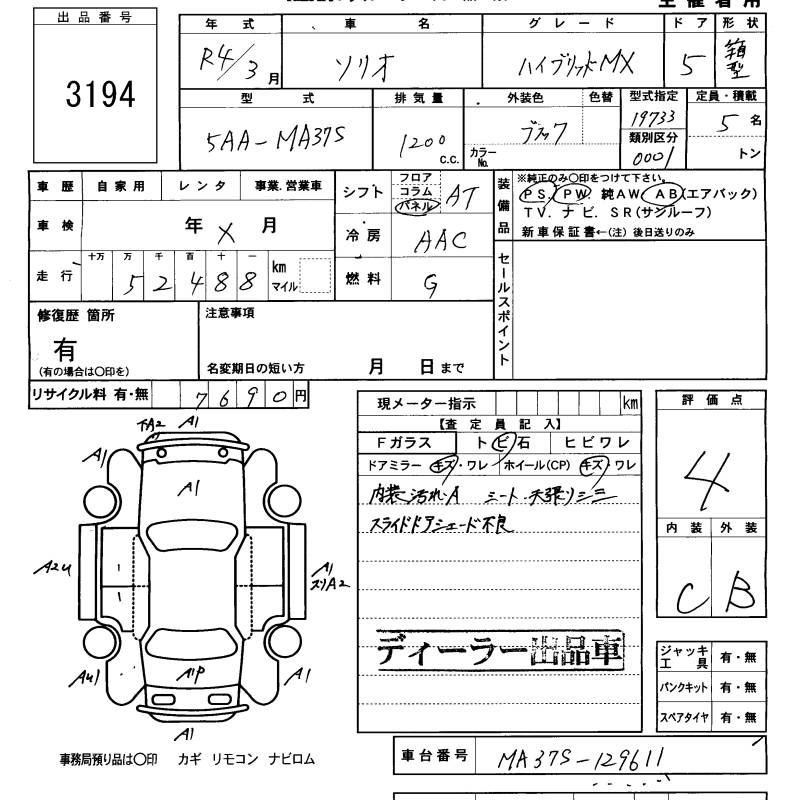 出品番号
3194
年式 車名 グレード ドア 形状
R4/3月 ソリオ ハイブリッドMX 5 箱型
型式 排気量 外装色 色替 型式指定 定員・積載
5AA-MA37S 1200 C.C. ブラック カラーNo. 19733 5名
類別区分
0001 トン
車歴 自家用 レンタ 事業.営業車
車検 年 X 月
走行 十万 万 千 百 十 一
5 2 4 8 8 km マイル
シフト フロア コラム パネル AT
冷房 AAC
燃料 G
装備品
※純正のみ〇印をつけて下さい。
PS. PW. 純AW. AB(エアバック)
TV. ナビ. SR(サンルーフ)
新車保証書←(注) 後日送りのみ
セールスポイント
修復歴 箇所
有
(有の場合は〇印を)
注意事項
名変期日の短い方 月 日まで
リサイクル料 有・無 7 6 9 0 円
現メーター指示 km
【査定員記入】
Fガラス トビ石 ヒビワレ
ドアミラー キズ・ワレ ホイール(CP) キズ・ワレ
内装 汚れ・A シート・天張りシミ
スライドドアシェード不良
ディーラー出品車
評価点
4
内装 外装
C B
ジャッキ工具 有・無
パンクキット 有・無
スペアタイヤ 有・無
下A2 A1
A1
A1
A2U
A1
スリA2
AU1
A1P
A1
A1
事務局預り品は〇印 カギ リモコン ナビロム
車台番号 MA37S-129611